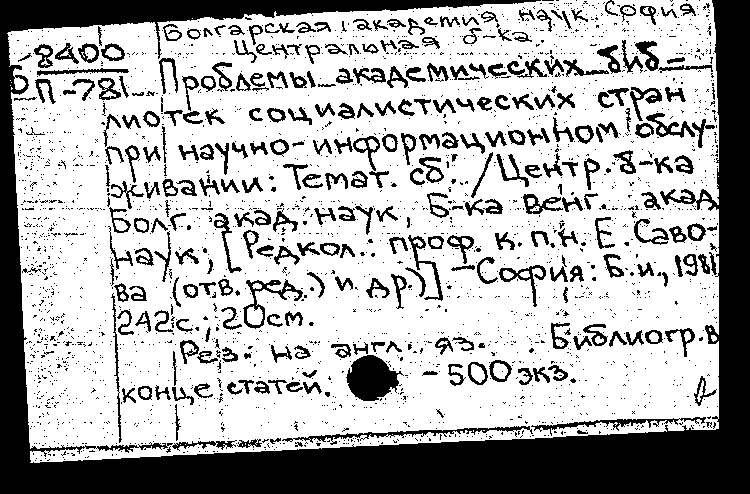 Болгарская академия наук. София
Центральная б-ка.
Б 8400
П-781
Проблемы академических биб-
лиотек социалистических стран
при научно-информационном обслу-
живании: Темат. сб. / Центр. б-ка
Болг. акад. наук, Б-ка Венг. акад.
наук; [Редкол.: проф. к.п.н. Е. Саво-
ва (отв. ред.) и др.)]. - София: Б.и., 1981
242с.; 20см.
Рез. на англ. яз. Библиогр. в
конце статей. - 500 экз.